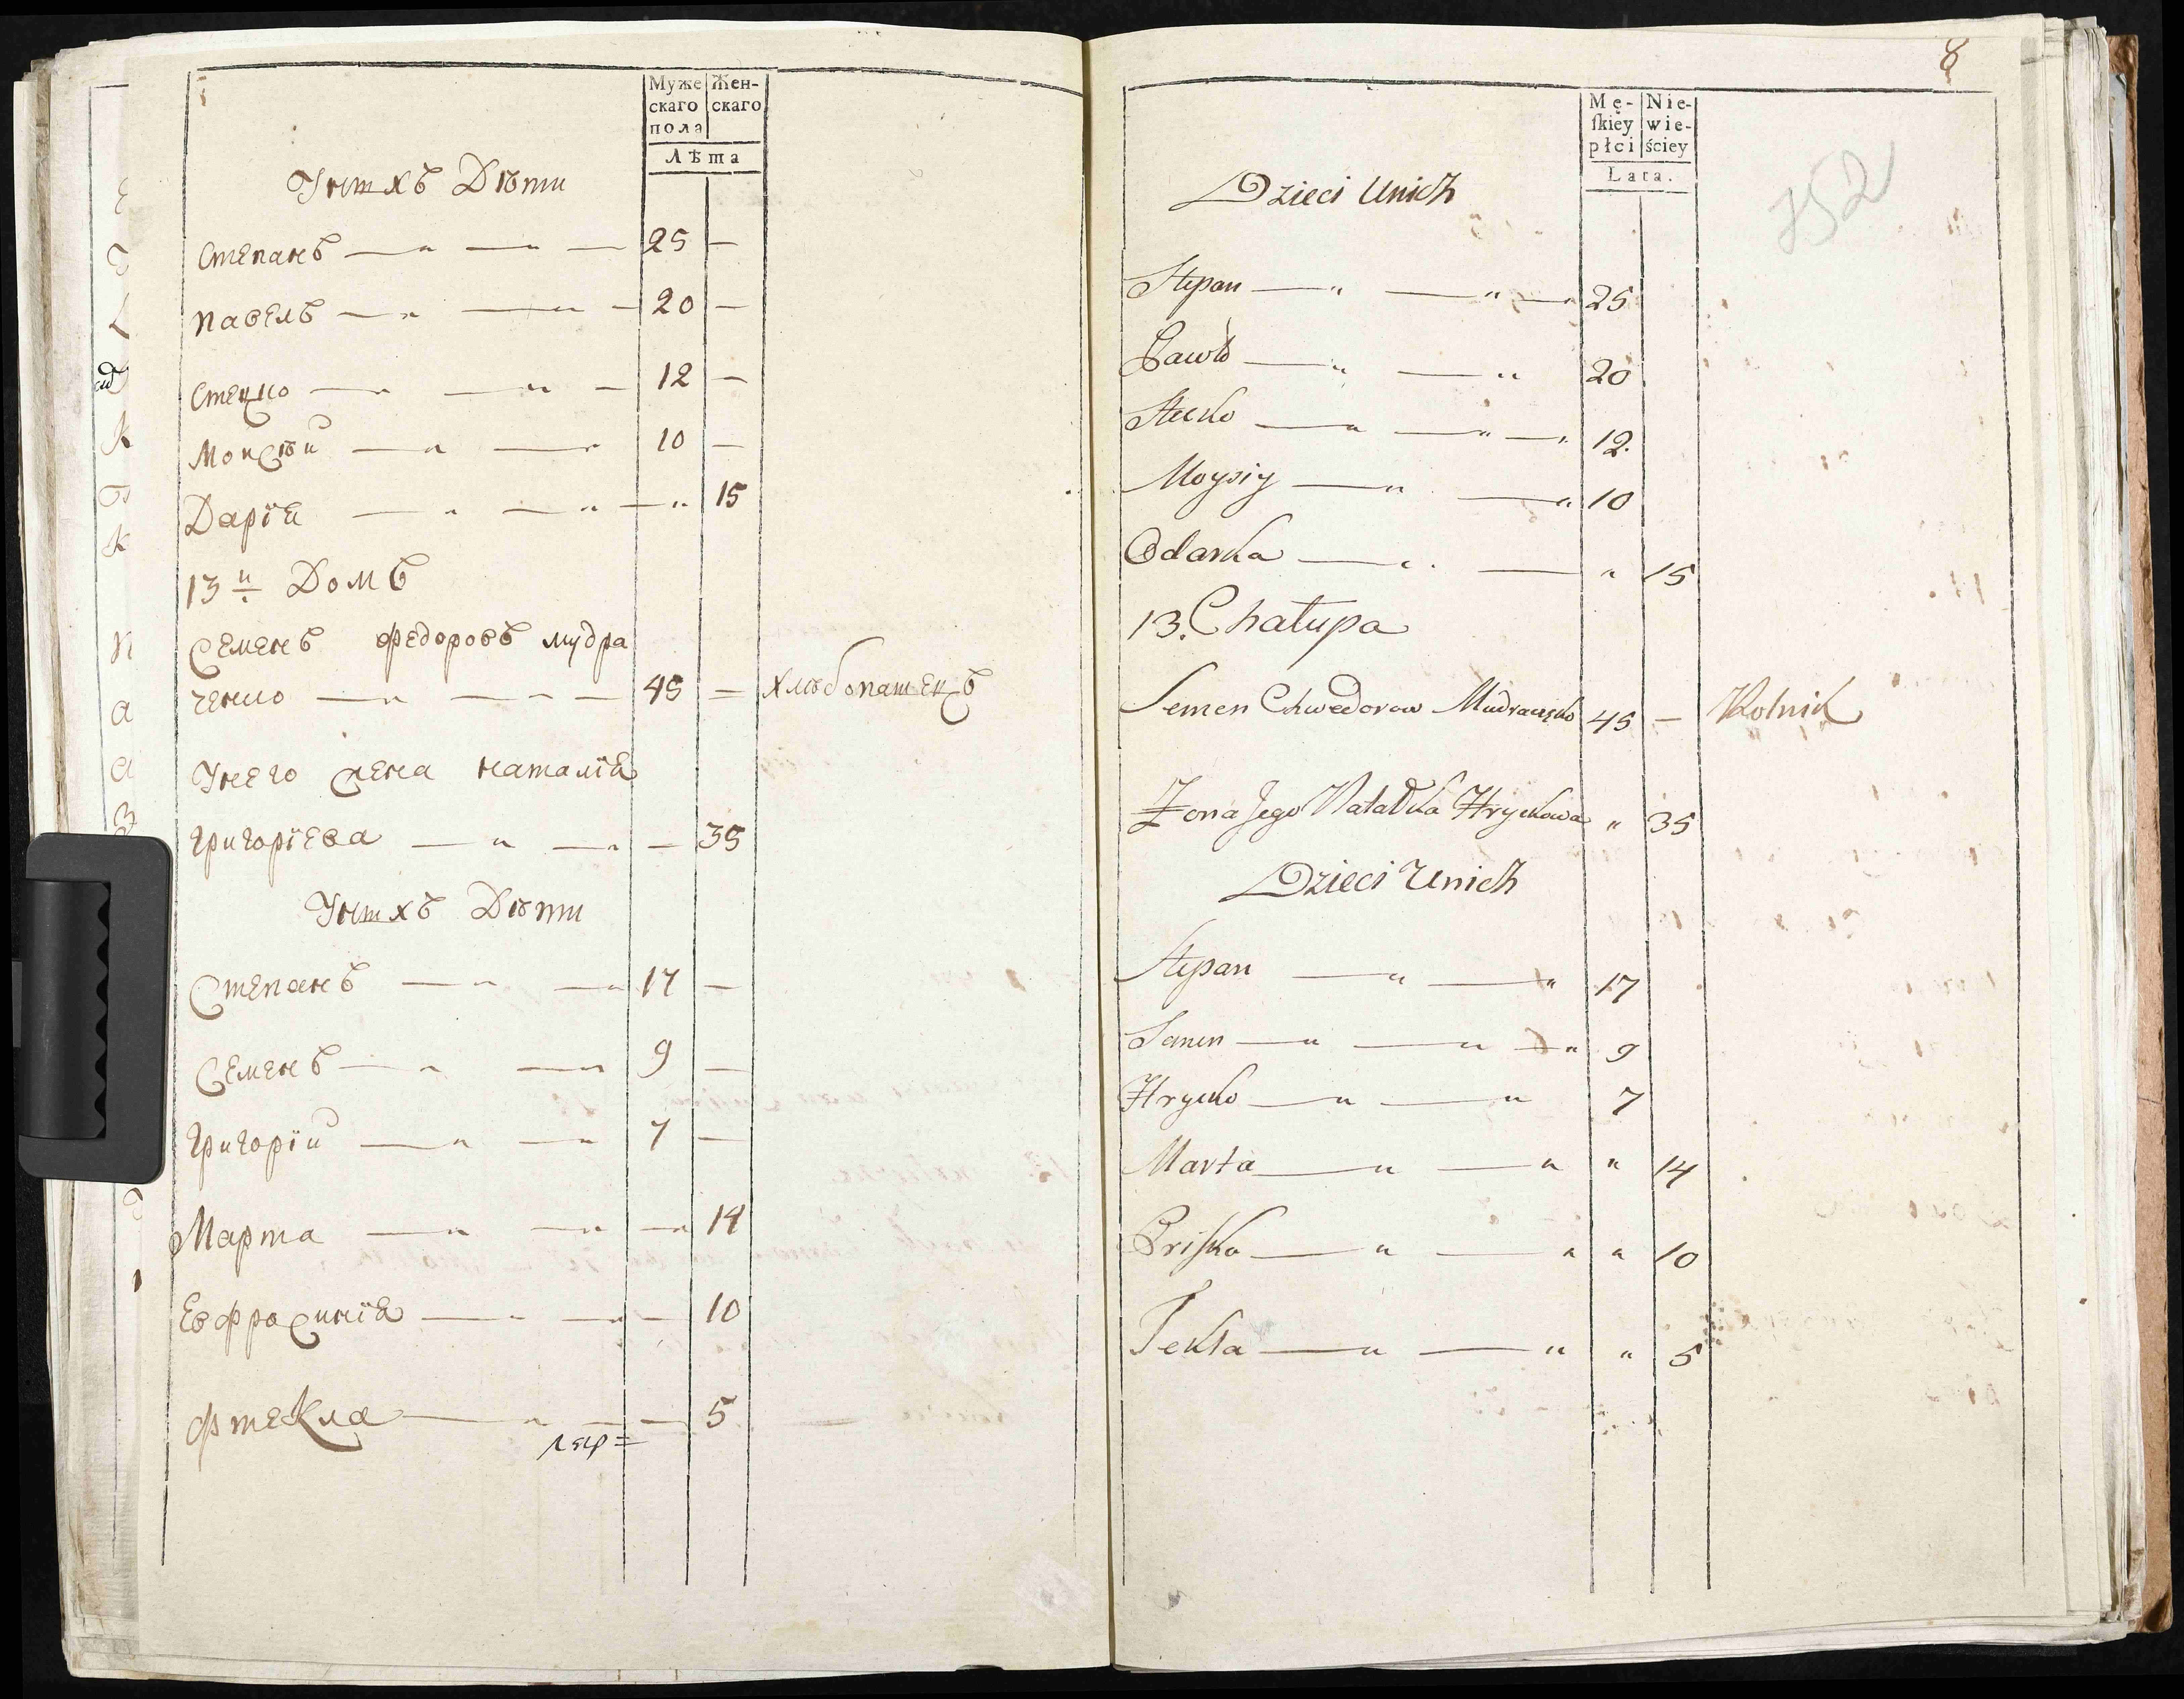 Муже Жен-
скаго скаго
пола
Лѣта
Унихъ Дѣти
Степанъ — „ — „ — 25 —
Павелъ — „ — „ — 20 —
Стецко — „ — „ — 12 —
Моисѣй — „ — „ 10 —
Дарїя — „ — „ — „ 15
13й Домъ
Семенъ Федоровъ Мудра
ченко — „ — „ — 45 — хлѣбопашецъ
Унего жена Наталїя
Григорїева — „ — „ — 35
Унихъ Дѣти
Степанъ — „ — „ 17 —
Семенъ — „ — „ 9 —
Григорїй — „ — „ 7 —
Марта — „ — „ — „ 14
Евфросинїя — „ — „ — 10
Фтекла — „ — — 5
8
Mę- Nie-
skiey wie-
płci ściey
Lata.
752
Dzieci Unich
Stepan — „ — „ — „ 25
Pawło — „ — „ 20
Stecko — „ — „ — „ 12.
Moysiy — „ — „ 10
Odarka — „ — „ 15
13. Chałupa
Semen Chwedorow Mudraczęko 45 — Rolnik
Zona Jego Natałka Hryckowa „ 35
Dzieci Unich
Stepan — „ — „ 17
Semen — „ — „ — „ 9
Hrycko — „ — „ 7
Marta — „ — „ „ 14
Priska — „ — „ „ 10
Tekla — „ — „ „ 5